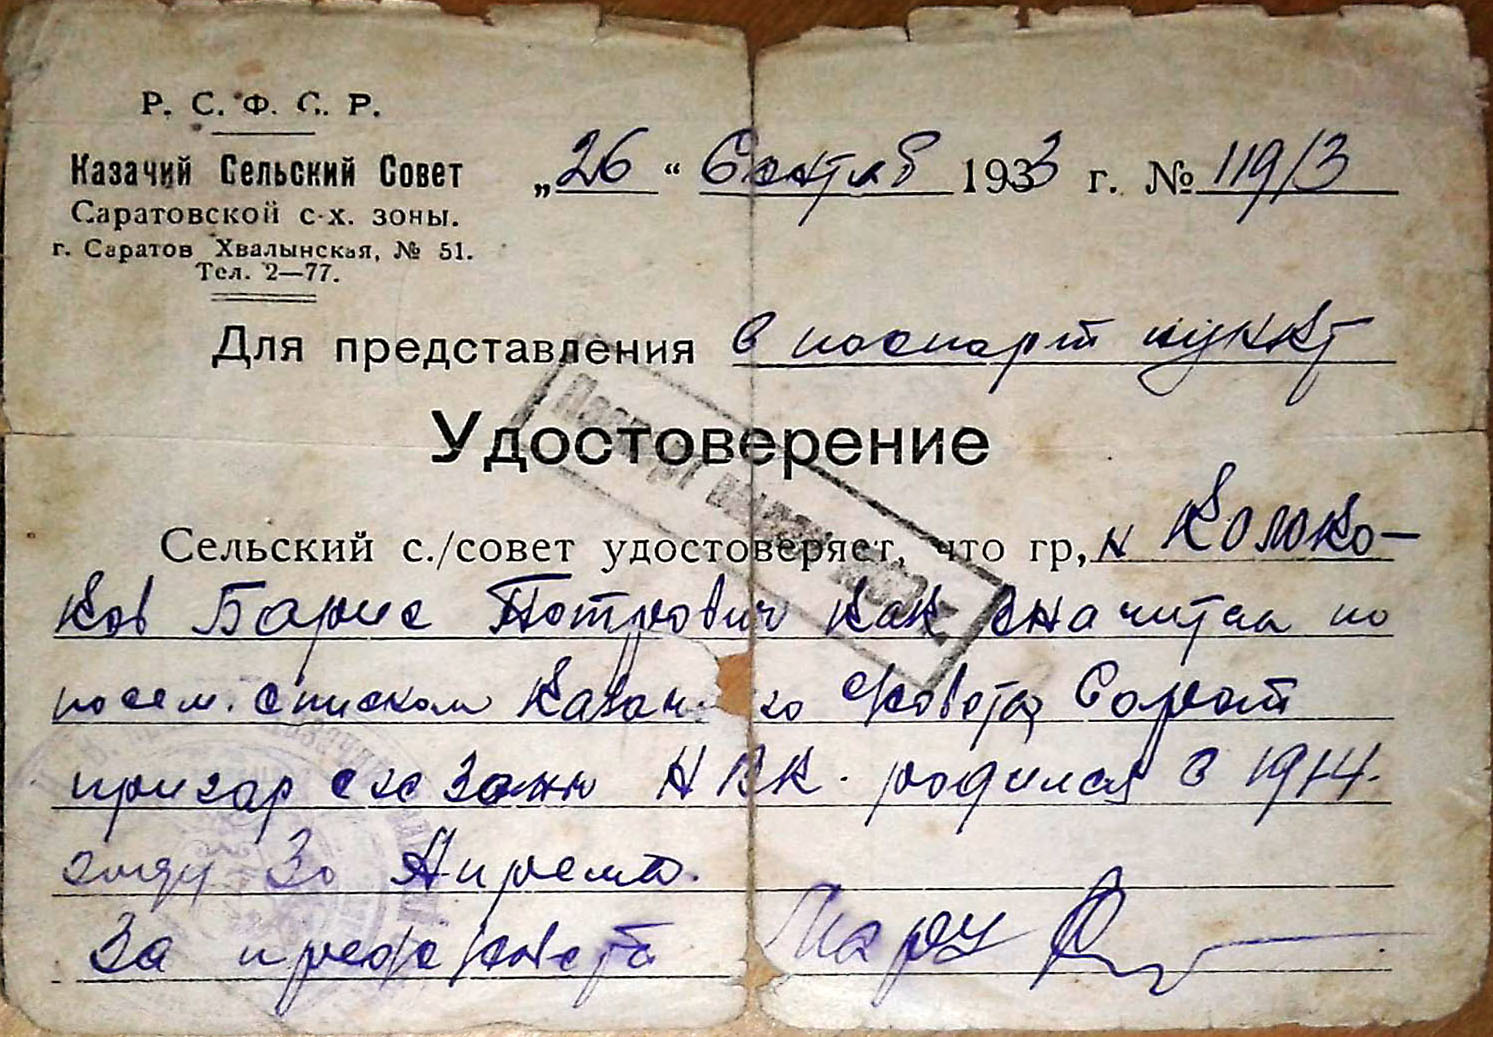 Р. С. Ф. С. Р.
Казачий Сельский Совет
Саратовской с-х. зоны.
г. Саратов Хвалынская, № 51.
Тел. 2—77.
„26“ Сентяб 1933 г. № 119/3
Для представления в паспорт пункт
Удостоверение
Сельский с./совет удостоверяет, что гр,н Колоко-
ков Барис Петрович как значится по
посем. списком Казач го Совета Сарат
пригар схс зоны НВК. родился в 1914.
году 30 Апреля.
За пред с/совета
Паспорт выдан 1933 г.